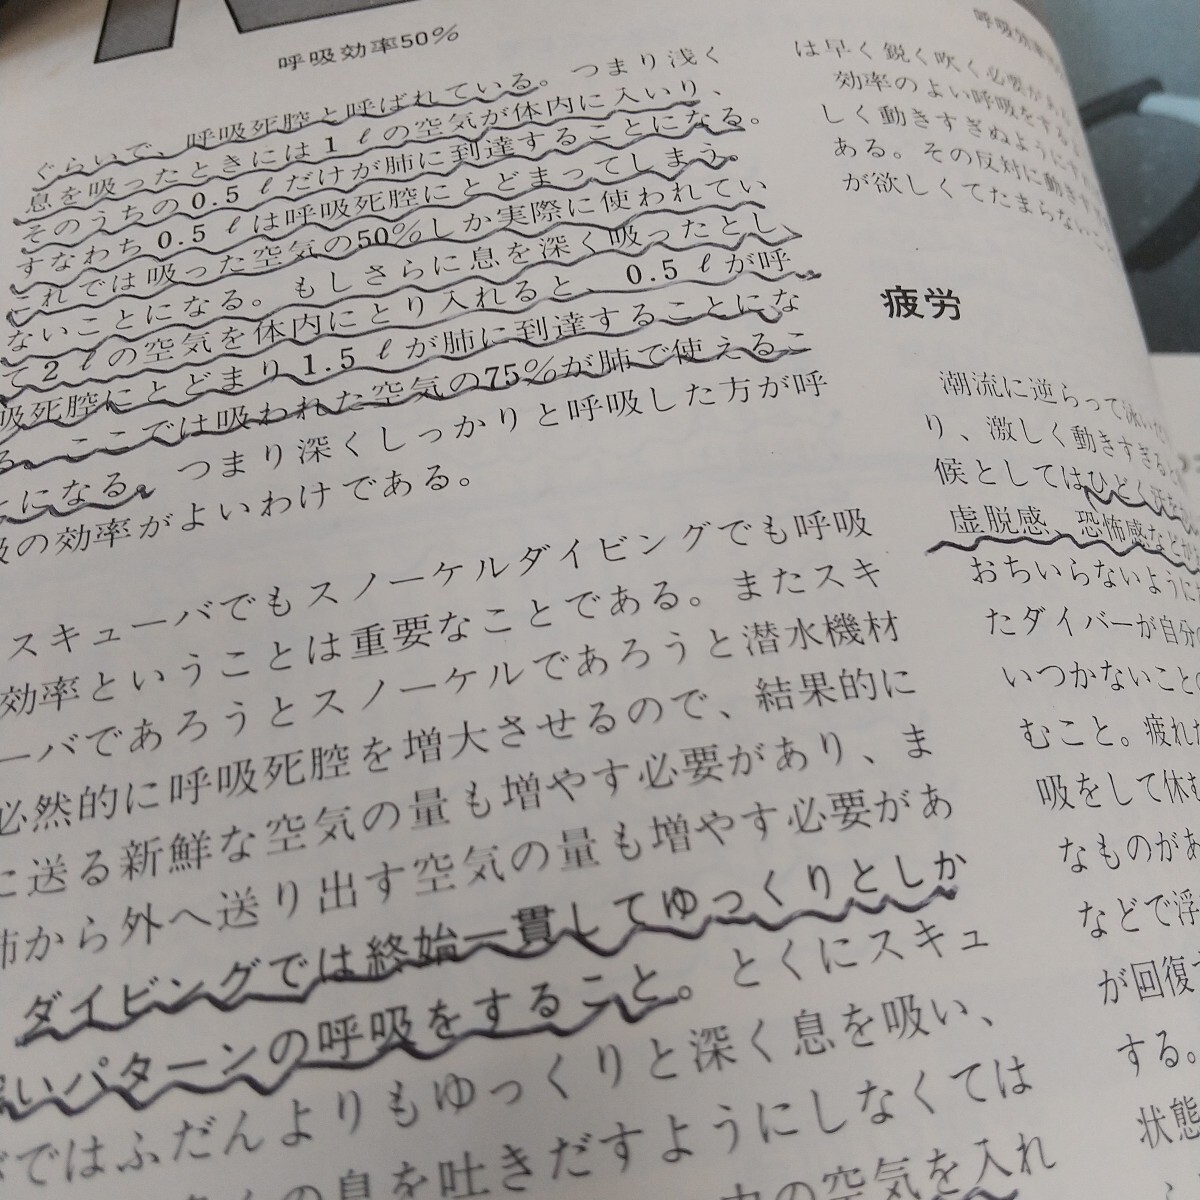 呼吸効率50%
ぐらいで、呼吸死腔と呼ばれている。つまり浅く
息を吸ったときには1ℓの空気が体内に入いり、
そのうちの0.5ℓだけが肺に到達することになる。
すなわち0.5ℓは呼吸死腔にとどまってしまう。
これでは吸った空気の50%しか実際に使われてい
ないことになる。もしさらに息を深く吸ったとし
て2ℓの空気を体内にとり入れると、0.5ℓが呼
吸死腔にとどまり1.5ℓが肺に到達することにな
る。ここでは吸われた空気の75%が肺で使えるこ
とになる。つまり深くしっかりと呼吸した方が呼
吸の効率がよいわけである。
スキューバでもスノーケルダイビングでも呼吸
効率ということは重要なことである。またスキ
ーバであろうとスノーケルであろうと潜水機材
必然的に呼吸死腔を増大させるので、結果的に
に送る新鮮な空気の量も増やす必要があり、ま
肺から外へ送り出す空気の量も増やす必要があ
ダイビングでは終始一貫してゆっくりとしか
深いパターンの呼吸をすること。とくにスキュ
ではふだんよりもゆっくりと深く息を吸い、
の息を吐きだすようにしなくては
の空気を入れ
呼吸効率
は早く鋭く吹く必要があ
効率のよい呼吸をする
しく動きすぎぬように
ある。その反対に動き
が欲しくてたまらない
疲労
潮流に逆らって泳い
り、激しく動きすぎる
候としてはひどく
虚脱感、恐怖感など
おちいらないように
たダイバーが自分
いつかないこと
むこと。疲れた
吸をして休む
なものがあ
などで浮
が回復
する。
状態